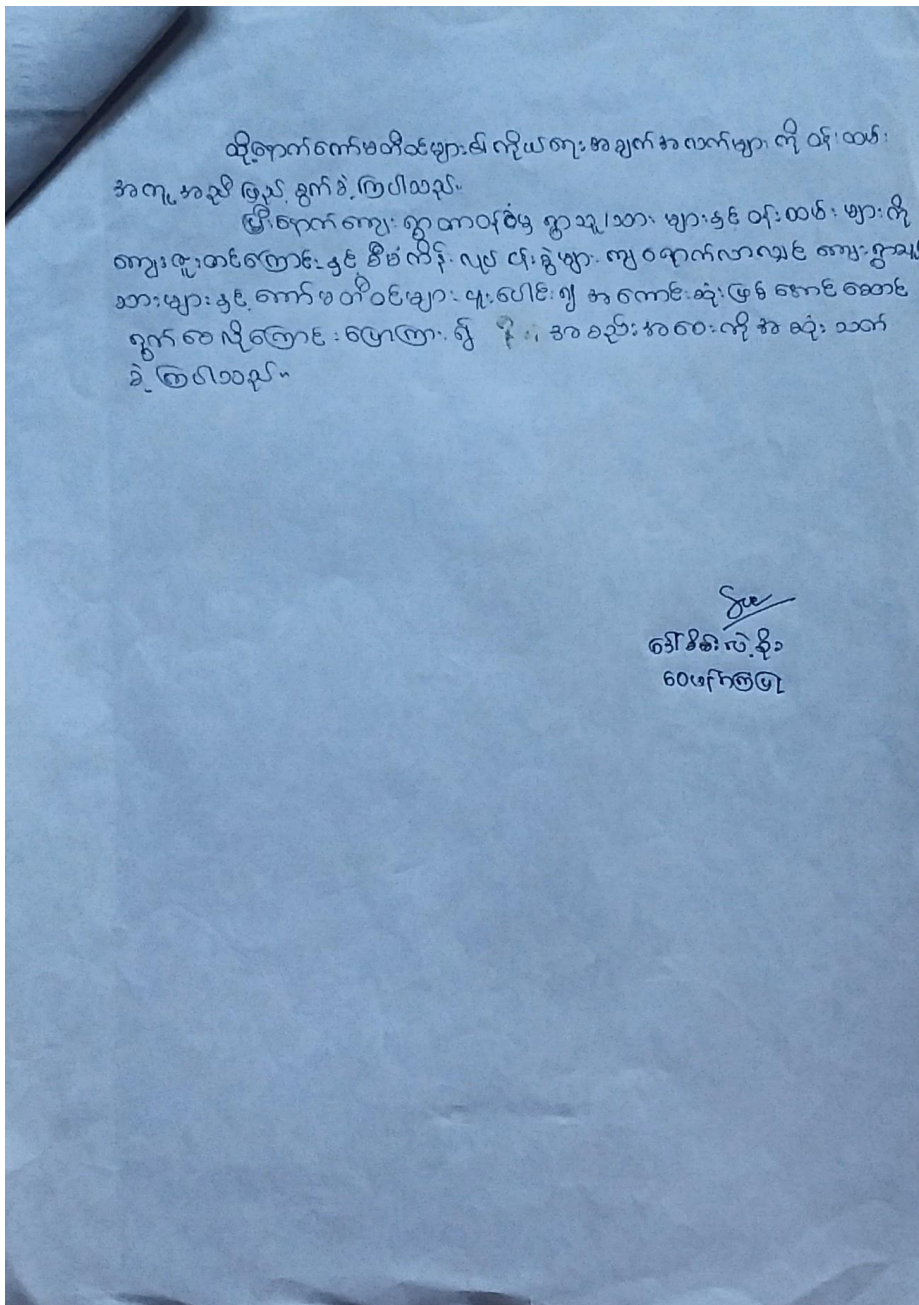 ထို့နောက်ကော်မတီဝင်များ၏ ကိုယ်ရေးအချက်အလက်များ ကို ဝန်ထမ်း
အကူအညီဖြည့်စွက်ခဲ့ကြပါသည်။
ပြီးနောက်ကျေးရွာတာဝန်ခံမှ ရွာသူ/သား များနှင့် ဝန်းထမ်း များကို
ကျေးဇူးတင်ကြောင်းနှင့် စီမံကိန်း လုပ်ငန်းခွဲများ ကျရောက်လာလျှင် ကျေးရွာသူ
သားများနှင့် ကော်မတီဝင်များ ပူးပေါင်း၍ အကောင်းဆုံးဖြစ်အောင်ဆောင်
ရွက်စေလိုကြောင်း ပြောကြား၍ အစည်းအဝေးကိုအဆုံးသတ်
ခဲ့ကြပါသည်။